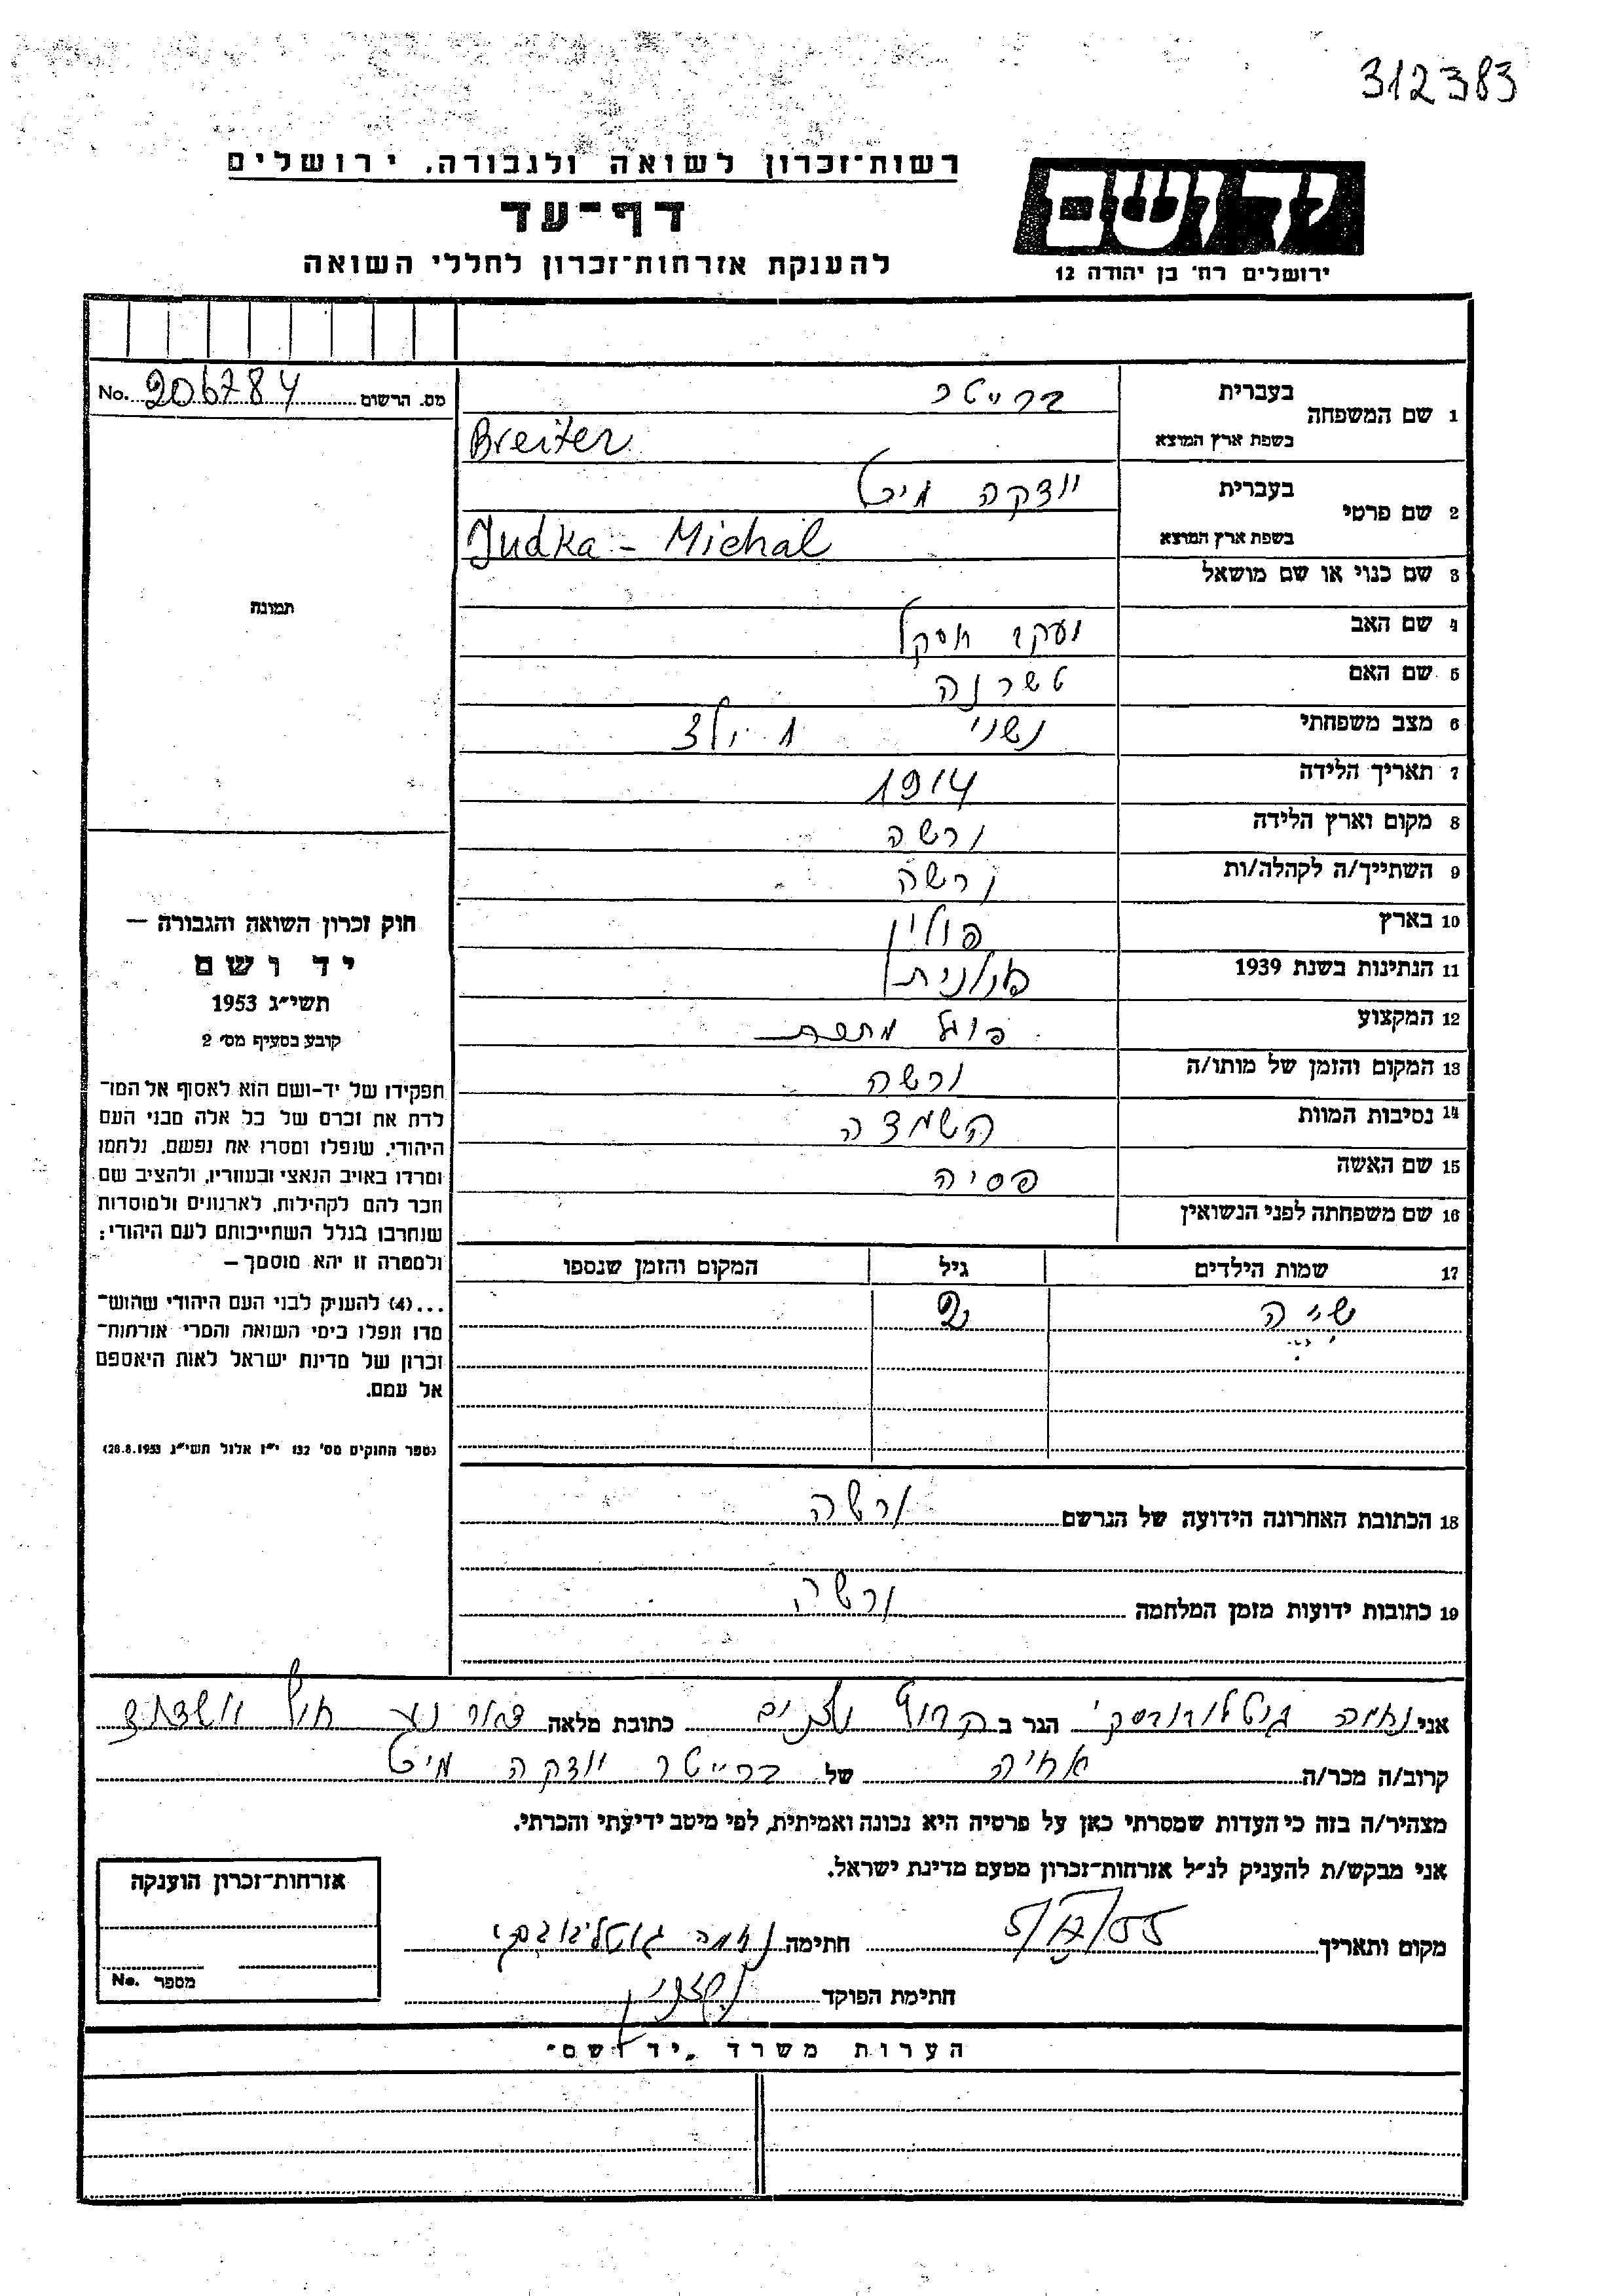 312383
רשות־זכרון לשואה ולגבורה, ירושלים
יד ושם
דף־עד
להענקת אזרחות־זכרון לחללי השואה
ירושלים רח׳ בן יהודה 12
מס. הרשום 206784 No.
1 שם המשפחה
בעברית ברייטר
בשפת ארץ המוצא Breiter
2 שם פרטי
בעברית יודקה
בשפת ארץ המוצא Judka - Michal
3 שם כנוי או שם מושאל
4 שם האב
5 שם האם
6 מצב משפחתי נשוי 1 ילד
7 תאריך הלידה 1914
8 מקום וארץ הלידה ורשה
9 השתייך/ה לקהלה/ות ורשה
10 בארץ פולין
11 הנתינות בשנת 1939 פולנית
12 המקצוע פועל מתכת
13 המקום והזמן של מותו/ה ורשה
14 נסיבות המוות השמדה
15 שם האשה פסיה
16 שם משפחתה לפני הנשואין
17 שמות הילדים גיל המקום והזמן שנספו
שיה 2
18 הכתובת האחרונה הידועה של הנרשם ורשה
19 כתובות ידועות מזמן המלחמה ורשה
תמונה
חוק זכרון השואה והגבורה –
יד ושם
תשי״ג 1953
קובע בסעיף מס׳ 2
תפקידו של יד־ושם הוא לאסוף אל המו־
לדת את זכרם של כל אלה מבני העם
היהודי, שנפלו ומסרו את נפשם, נלחמו
ומרדו באויב הנאצי ובעוזריו, ולהציב שם
וזכר להם לקהילות, לארגונים ולמוסדות
שנחרבו בגלל השתייכותם לעם היהודי;
ולמטרה זו יהא מוסמך –
...(4) להעניק לבני העם היהודי שהוש־
מדו ונפלו בימי השואה והמרי אזרחות־
זכרון של מדינת ישראל לאות היאספם
אל עמם.
(ספר החוקים מס׳ 132 י״ז אלול תשי״ג 28.8.1953)
אני נחמה הגר ב כתובת מלאה
קרוב/ה מכר/ה אחיה של ברייטר יודקה
מצהיר/ה בזה כי העדות שמסרתי כאן על פרטיה היא נכונה ואמיתית, לפי מיטב ידיעתי והכרתי.
אני מבקש/ת להעניק לנ״ל אזרחות־זכרון מטעם מדינת ישראל.
מקום ותאריך חתימה נחמה
חתימת הפוקד
אזרחות־זכרון הוענקה
מספר No.
הערות משרד „יד ושם״